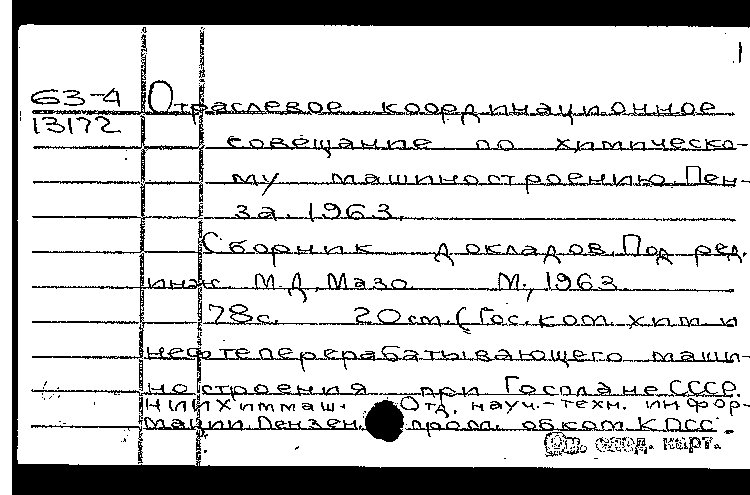 1
63-4 Отраслевое координационное
13172 совещание по химическо-
му машиностроению. Пен-
за. 1963.
Сборник докладов. Под ред.
инж. М.Д. Мазо. М., 1963.
78с. 20см. (Гос. ком. хим и
нефтеперерабатывающего маши-
ностроения при Госплане СССР.
НИИХиммаш. Отд. науч.-техн. инфор-
мации. Пензен. пром. обком КПСС.
свод. карт.